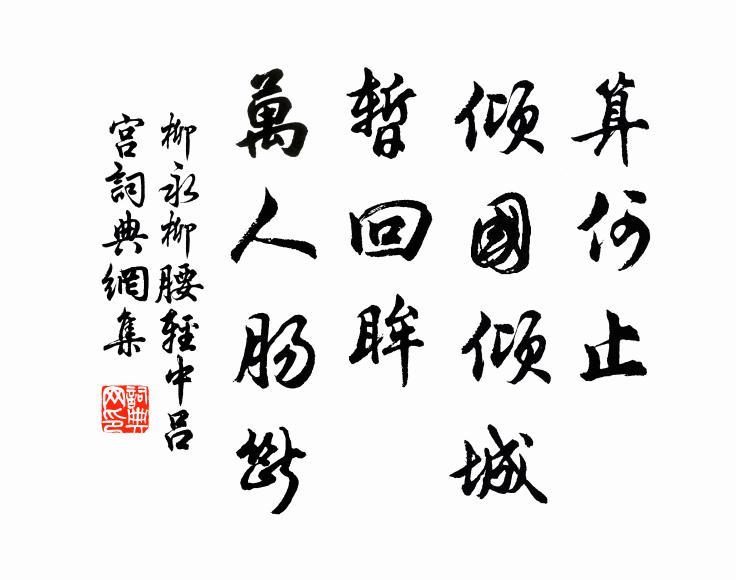 算何止
傾國傾城
暫回眸
萬人腸斷
柳永柳腰輕中呂
宮詞典網集
詞典
网印